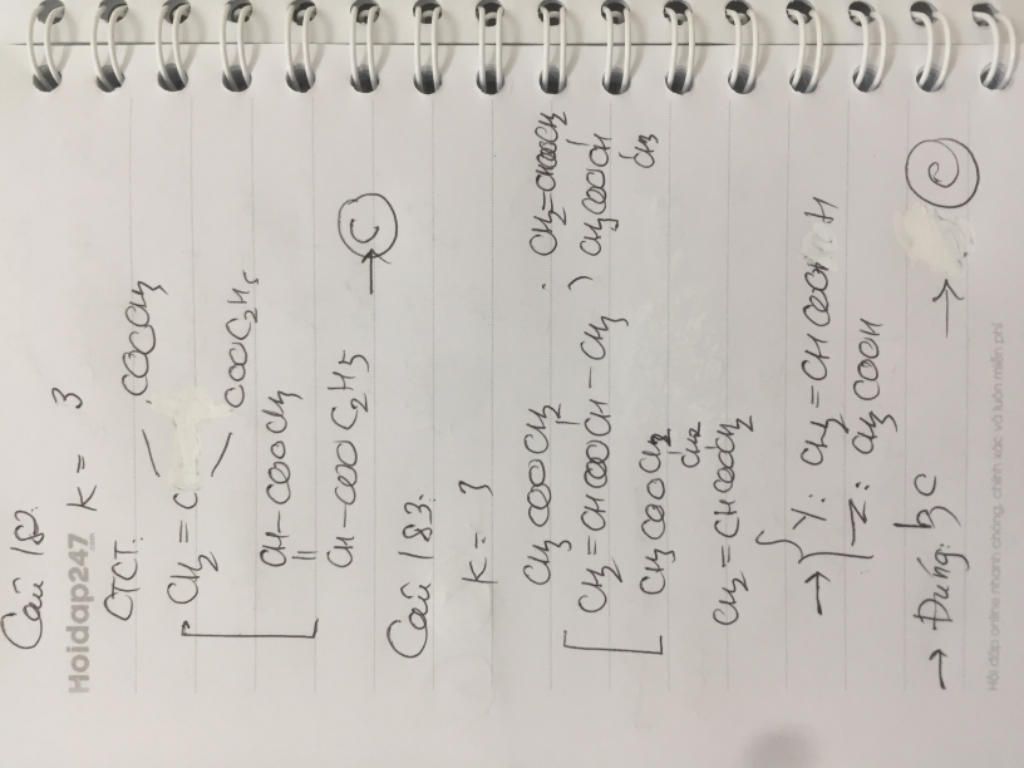 Câu 182:
Hoidap247
K = 3
CTCT:
COOCH3
CH2 = C
COOC2H5
CH-COOCH3
||
CH-COOC2H5
→ C
Câu 183:
K = 3
CH3COOCH2
CH2=CHCOOCH-CH3
CH2=CHCOOCH2
CH3COOCH
CH3
CH3COOCH2
CH2
CH2=CHCOOCH2
→ Y: CH2=CHCOOH
Z: CH3COOH
→ Đúng: b, c
→ C
Hỏi đáp online nhanh chóng, chính xác và luôn miễn phí